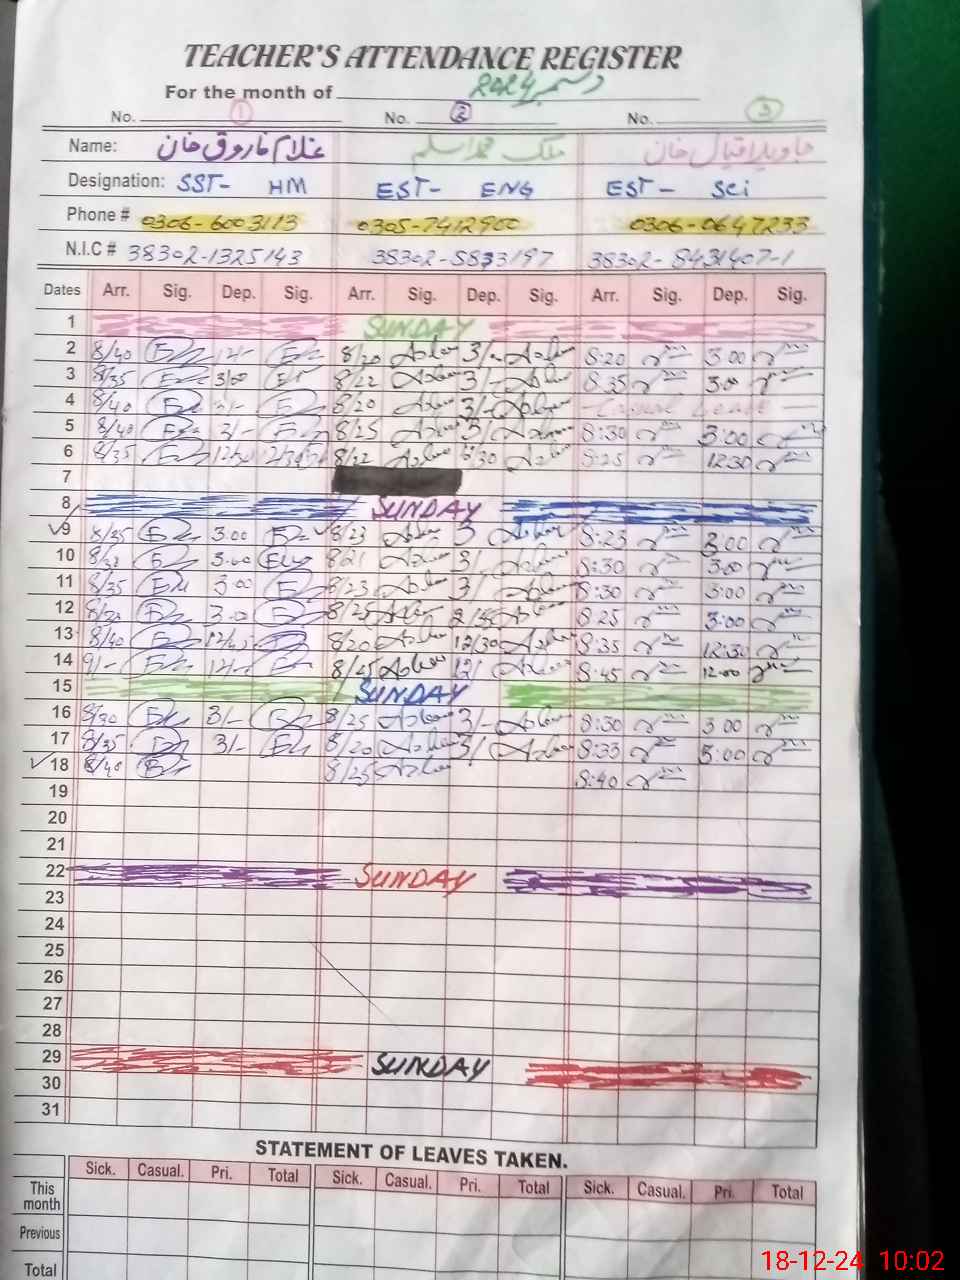 TEACHER'S ATTENDANCE REGISTER
For the month of دسمبر 2024
No. 1 No. 2 No. 3
Name: غلام فاروق خان ملک محمد اسلم جاوید اقبال خان
Designation: SST- HM EST- ENG EST- Sci
Phone # 0306-6003113 0305-7412900 0306-0647233
N.I.C # 38302-1325143 38302-5833197 38302-8431407-1
Dates Arr. Sig. Dep. Sig. Arr. Sig. Dep. Sig. Arr. Sig. Dep. Sig.
1 SUNDAY
2 8/40 12/- 8/20 Aslam 3/- Aslam 8:20 3:00
3 8/35 3/00 8/22 Aslam 3/- Aslam 8:35 3:00
4 8/40 3/- 8/20 Aslam 3/- Aslam -Casual Leave-
5 8/40 3/- 8/25 Aslam 3/ Aslam 8:30 3:00
6 8/35 12/30 12/30 8/22 Aslam 12/30 Aslam 8:25 12:30
7
8 SUNDAY
9 8/35 3.00 8/23 Aslam 3 Aslam 8:23 3:00
10 8/32 3.00 8/21 Aslam 3/ Aslam 8:30 3:00
11 8/35 3:00 8/23 Aslam 3/ Aslam 8:30 3:00
12 8/30 3.00 8/25 Aslam 2/55 Aslam 8:25 3:00
13 8/40 8/20 Aslam 12/30 Aslam 8:35 12:30
14 9/- 12/- 8/45 Aslam 12/ Aslam 8:45 12:00
15 SUNDAY
16 8/30 3/- 8/25 Aslam 3/- Aslam 8:30 3:00
17 8/35 3/- 8/20 Aslam 3/ Aslam 8:33 3:00
18 8/40 8/25 Aslam 8:40
19
20
21
22 SUNDAY
23
24
25
26
27
28
29 SUNDAY
30
31
STATEMENT OF LEAVES TAKEN.
Sick. Casual. Pri. Total Sick. Casual. Pri. Total Sick. Casual. Pri. Total
This month
Previous
Total
18-12-24 10:02